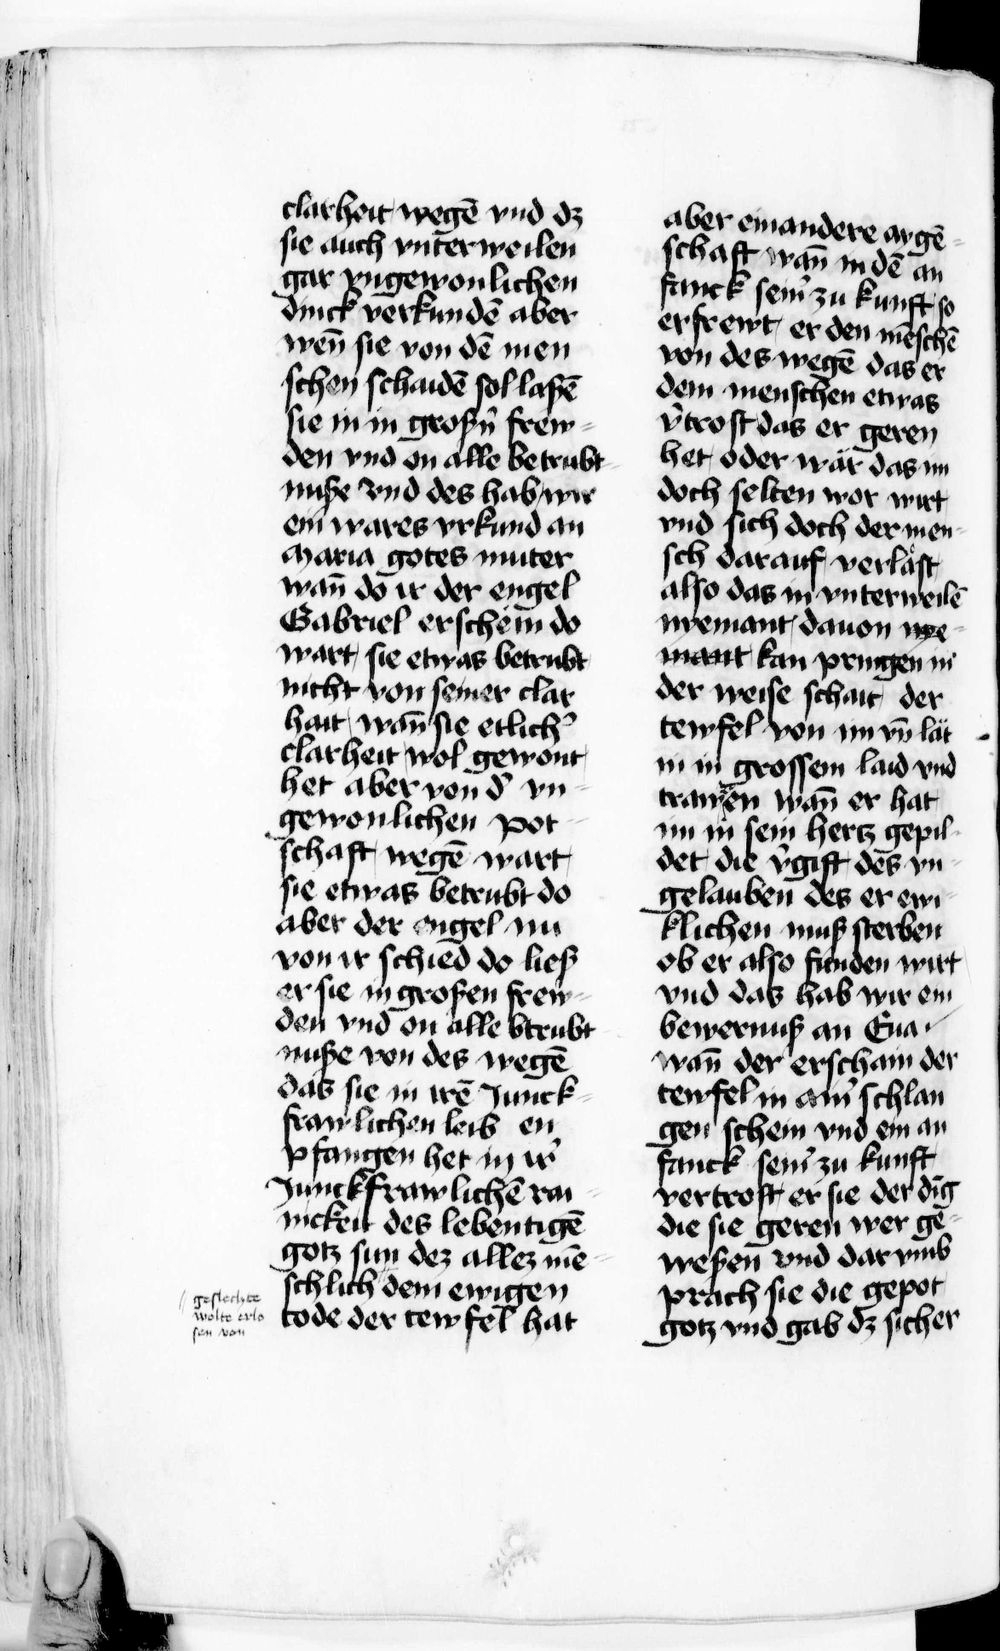 clarheit wegē vnd dz
sie auch vnterweilen
gar vngewonlichen
dinck verkundē aber
wen̄ sie von dē men
schen schaidē sol laßē
sie in in großn̄ frew=
den vnd on alle betrubt=
nuße vnd des hab wir
ein wares vrkund an
Maria gotes muter
wan̄ do ir der engel
Gabriel erschein do
wart sie etwas betrubt
nicht von seiner clar
hait wan̄ sie etlich̛
clarheit wol gewont
het aber von d̛ vn=
gewonlichen pot=
schaft wegē wart
sie etwas betrubt do
aber der engel nu
von ir schied do ließ
er sie in großen frew=
den vnd on alle btrubt
nuße von des wegē
das sie in irē Junck=
frawlichen leib en
pfangen het in ir̛
Junckfrawlichē rai=
nickeit des lebentigē
gotz sun dez allez mē=
schlich dem ewigen
tode der tewfel hat
// geslechte
wolte erlo
sen von
aber ein andere aygē=
schaft wan̄ in dē an
fanck sein̛ zu kunft so
erfrewt er den mēschē
von des wegē das er
dem menschen etwas
v̛trost das er geren
het oder wär das im
doch selten wor wirt
vnd sich doch der men=
sch darauf verläst
also das in vnterweilē
nyemant dauon nye=
mant kan pringen in
der weise schait der
tewfel von im vn̄ lät
in in grossem laid vnd
trawren wan̄ er hat
im in sein hertz gepil=
det die v̛gift des vn=
gelauben des er ewi=
klichen muß sterben
ob er also funden wirt
vnd das hab wir ein
bewernuß an Eua
wan̄ der erschain der
tewfel in ain̛ schlan
gen schein vnd ein an
fanck sein̛ zu kunft
vertrost er sie der dīg
die sie geren wer ge=
weßen vnd dar vmb
prach sie die gepot
gotz vnd gab dz sicher